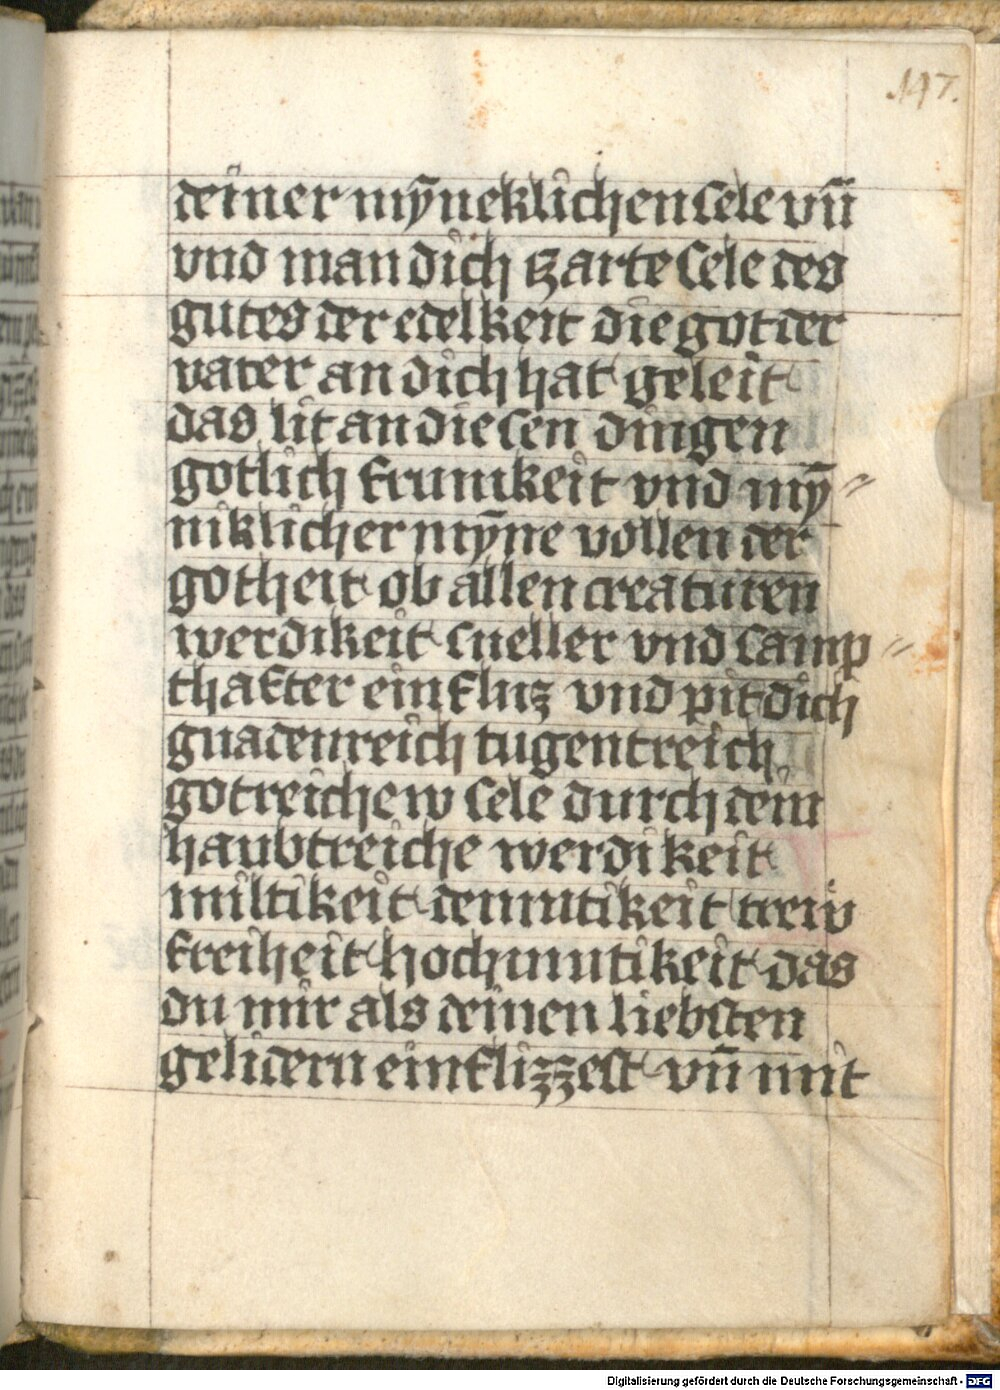 147.
deiner mȳneklichen sele vn̄
vnd man dich tzarte sele des
gutes der edelkeit die got der
vater an dich hat geleit
das lit an diesen dingen
gotlich frumkeit vnd mȳ〃
niklicher mȳne vollen der
gotheit ob allen creaturen
werdikeit sneller vnd samp〃
thafter einfluz vnd pit dich
gnadenreich tugentreich
gotreichew sele durch dein
haubtreiche werdikeit
miltikeit demutikeit trew
freiheit hochmutikeit das
du mir als deinen liebsten
gelidern einflizzest vn̄ mit
Digitalisierung gefördert durch die Deutsche Forschungsgemeinschaft - DFG